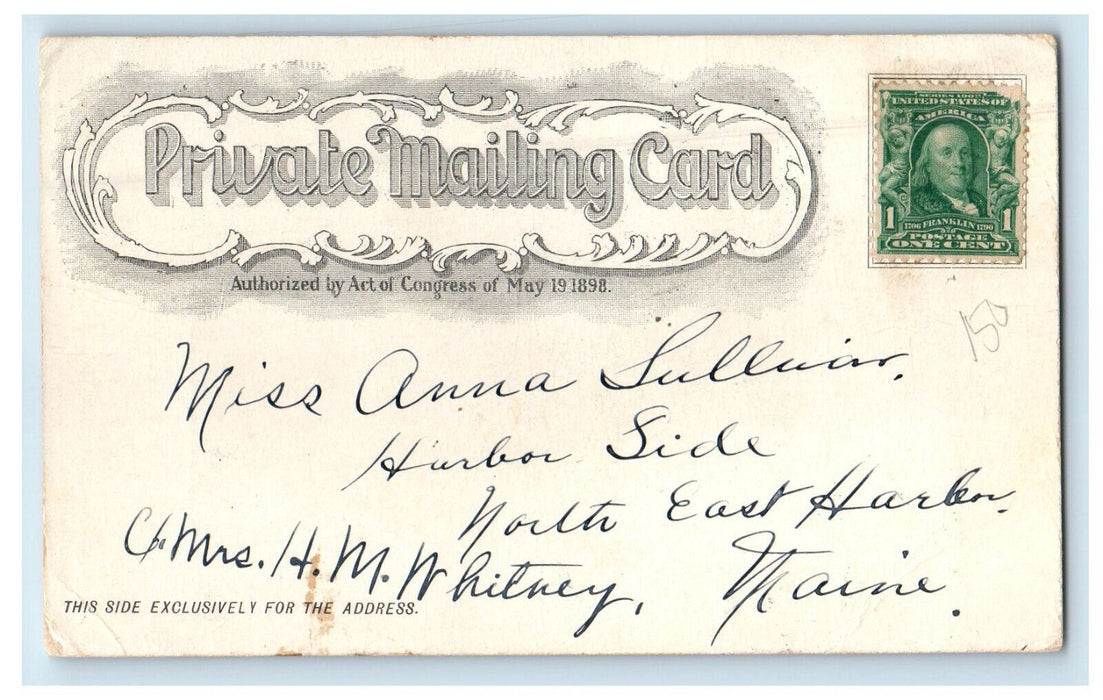 Private Mailing Card
Authorized by Act of Congress of May 19 1898.
SERIES 1902
UNITED STATES OF
AMERICA
1 1
1706 FRANKLIN 1790
POSTAGE
ONE CENT
150
Miss Anna Sullivan,
Harbor Side
North East Harbor,
Maine.
C/o Mrs. H. M. Whitney,
THIS SIDE EXCLUSIVELY FOR THE ADDRESS.